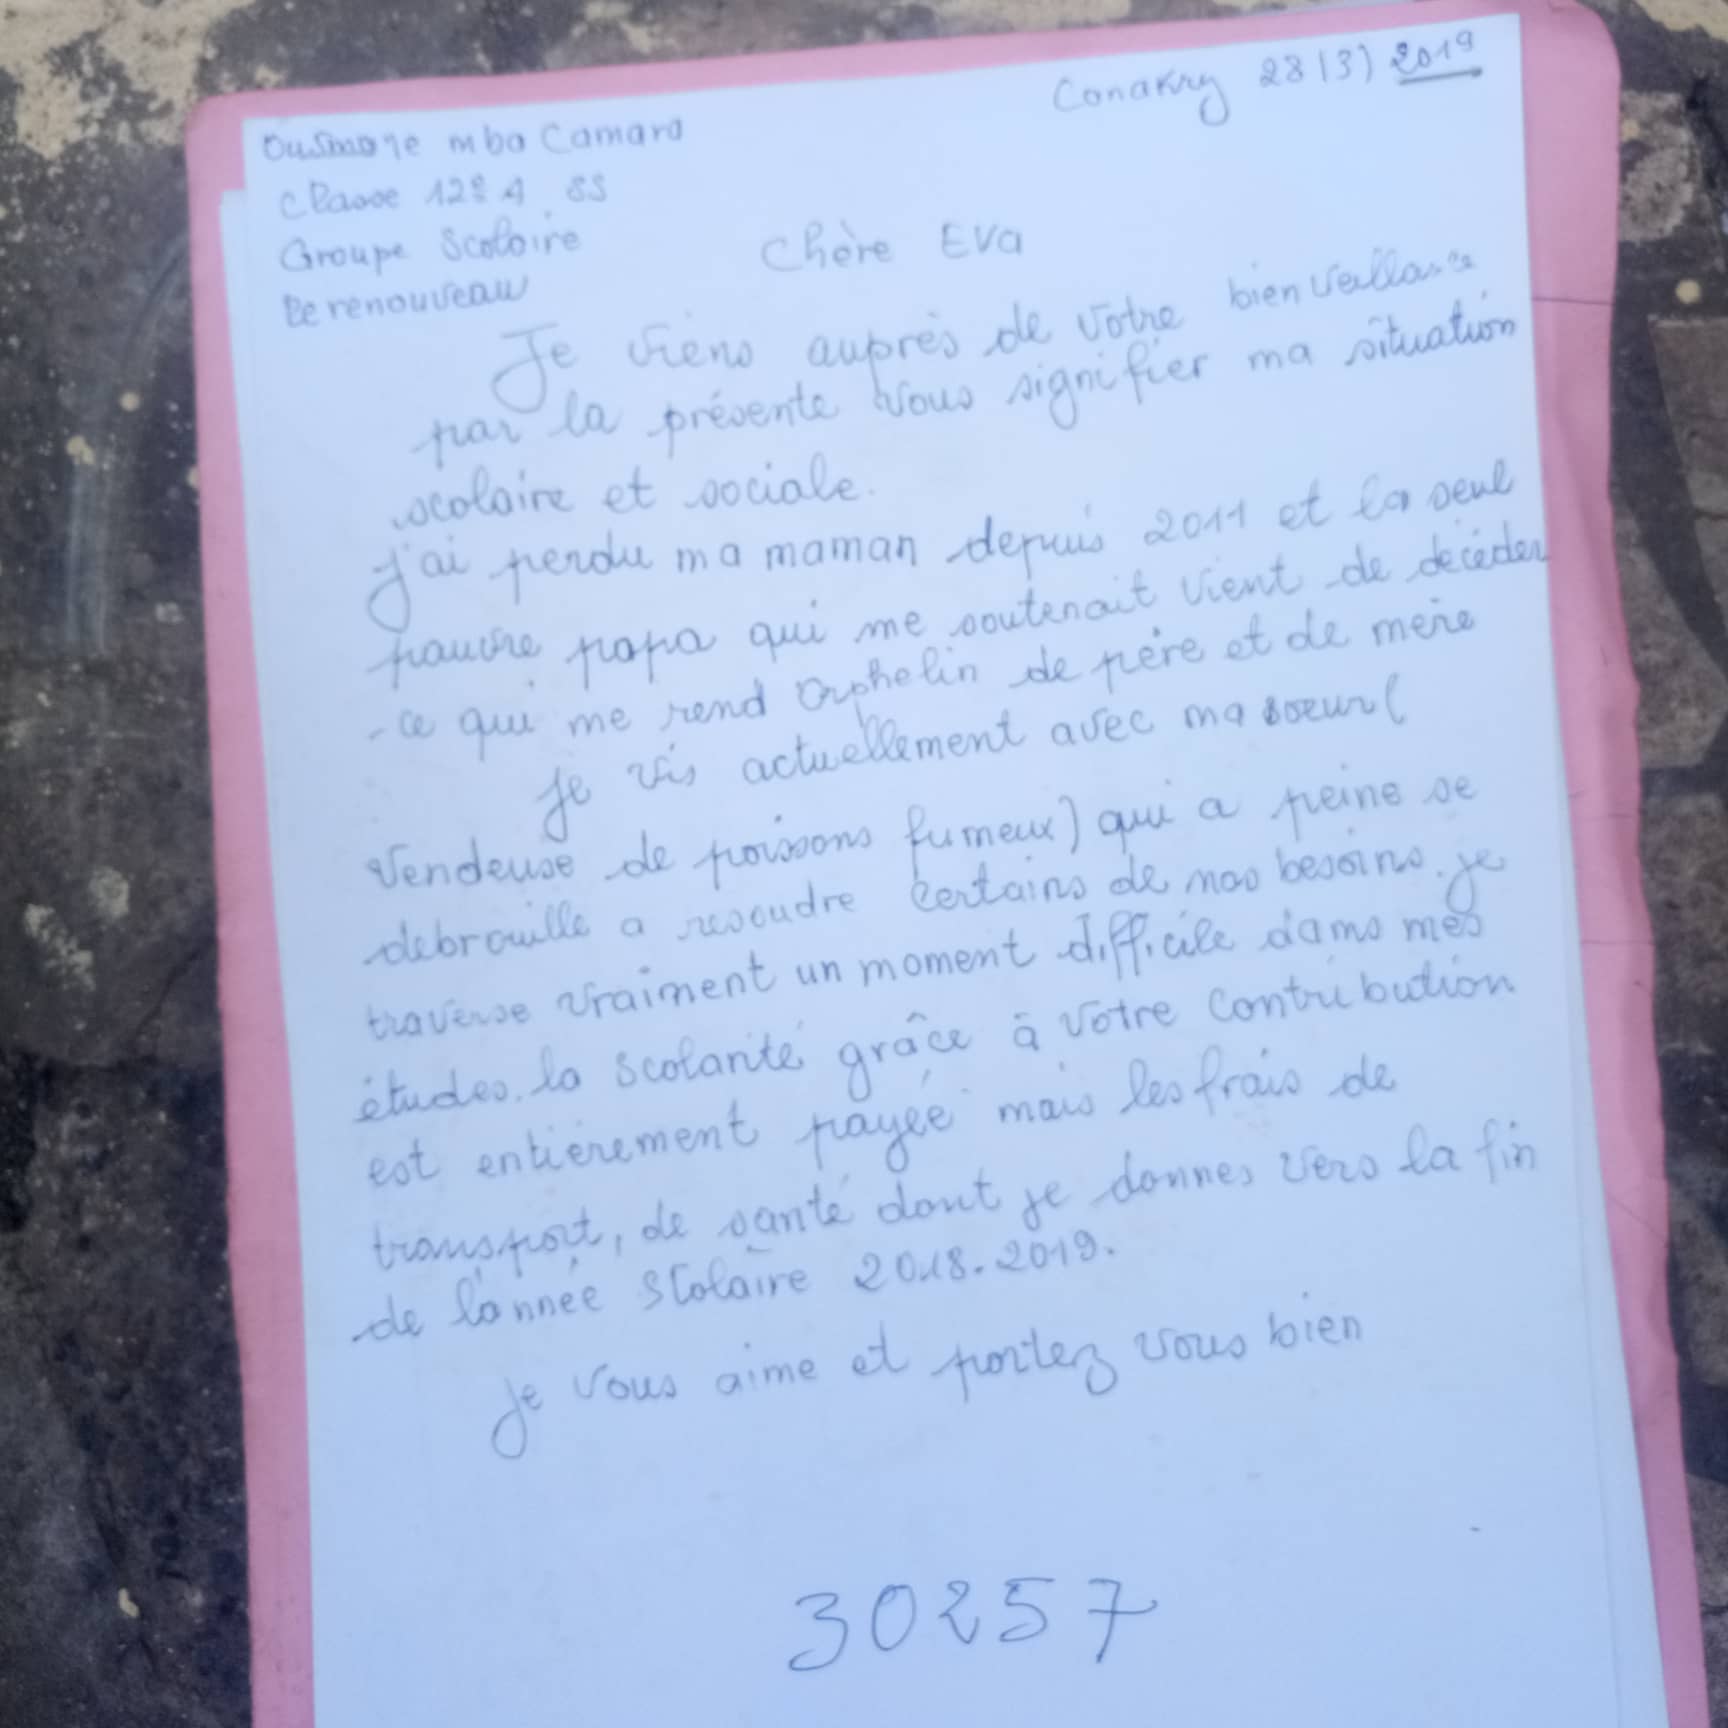 Conakry 28/3/2019
Ousmane mba Camara
Classe 12è A SS
Groupe Scolaire
Le renouveau
Chère Eva
Je viens auprès de votre bienveillance
par la présente vous signifier ma situation
scolaire et sociale.
J'ai perdu ma maman depuis 2011 et la seul
pauvre papa qui me soutenait vient de décéder
ce qui me rend Orphelin de père et de mère
Je vis actuellement avec ma soeur (
Vendeuse de poissons fumeux) qui a peine se
debrouille a resoudre certains de nos besoins. je
traverse vraiment un moment difficile dans mes
études. la scolarité grâce à votre contribution
est entièrement payée mais les frais de
transport, de santé dont je donnes vers la fin
de l'année scolaire 2018.2019.
Je vous aime et portez vous bien
30257